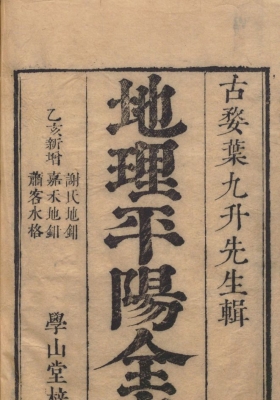 古婺葉九升先生輯
地理平陽全
乙亥新增
謝氏地鉗
嘉禾地鉗
蕭客水格
學山堂梓